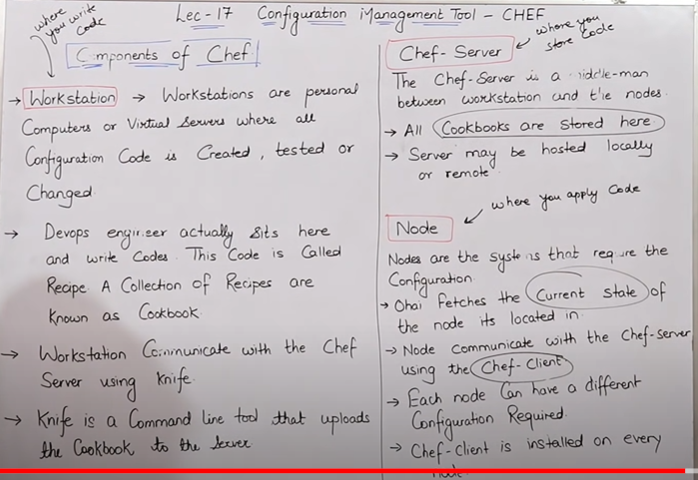 Lec-17 Configuration Management Tool - CHEF
where
you write
code
Components of Chef
→ Workstation → Workstations are personal
Computers or Virtual Servers where all
Configuration Code is Created, tested or
Changed.
→ Devops engineer actually sits here
and write Codes. This Code is Called
Recipe. A Collection of Recipes are
known as Cookbook.
→ Workstation Communicate with the Chef
Server using Knife.
→ Knife is a Command line tool that uploads
the Cookbook to the Server
Chef-Server
where you
store Code
The Chef-Server is a middle-man
between workstation and the nodes.
→ All Cookbooks are Stored here.
→ Server may be hosted locally
or remote
Node
where you apply Code
Nodes are the systems that require the
Configuration
→ Ohai Fetches the Current State of
the node its located in.
→ Node communicate with the Chef-server
using the Chef-Client
→ Each node Can have a different
Configuration Required.
→ Chef-Client is installed on every